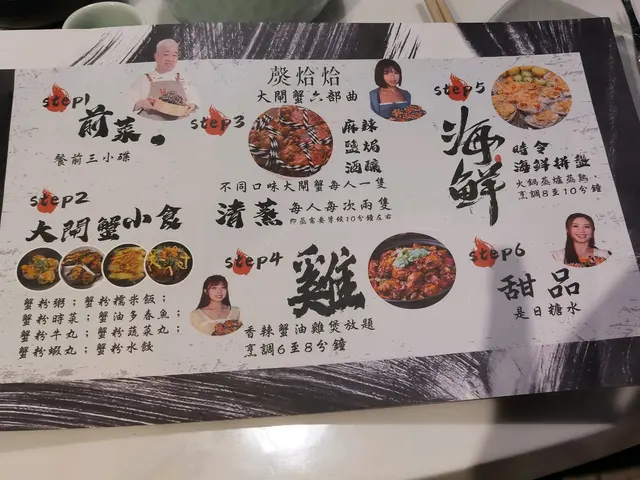 煲烚烚
大閘蟹六部曲
step1
前菜。
餐前三小碟
step2
大閘蟹小食
蟹粉粥；蟹粉糯米飯；
蟹粉時菜；蟹油多春魚；
蟹粉牛丸；蟹粉蔬菜丸；
蟹粉蝦丸；蟹粉水餃
step3
麻辣
鹽焗
酒釀
不同口味大閘蟹每人一隻
清蒸
每人每次兩隻
即蒸需要等候10分鐘左右
step4
雞
香辣蟹油雞煲放題
烹調6至8分鐘
step5
海鮮
時令
海鮮拼盤
火鍋蒸爐蒸熟，
烹調8至10分鐘
step6
甜品
是日糖水